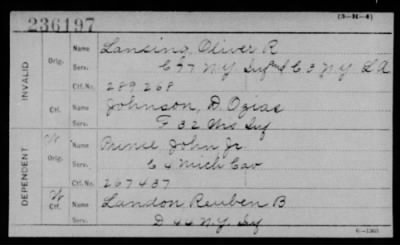 236197
(3-H-4)
INVALID
Orig.
Name Lansing, Oliver R
Serv. C 97 N Y Inf and C 3 N Y L A
Ctf. No. 289268
Ctf.
Name Johnson, D. Ozias
Serv. F 32 Mo Inf
DEPENDENT
W
Orig.
Name Prince John Jr.
Serv. C 4 Mich Cav
Ctf. No. 267437
W
Ctf.
Name Landon Reuben B
Serv. D 44 N.Y. Inf